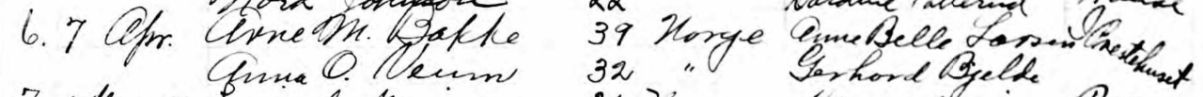 6. 7 Apr. Arne M. Bakke 39 Norge Anne Belle Larsen Prestehuset
Anna O. Veum 32 " Gerhard Bjelde